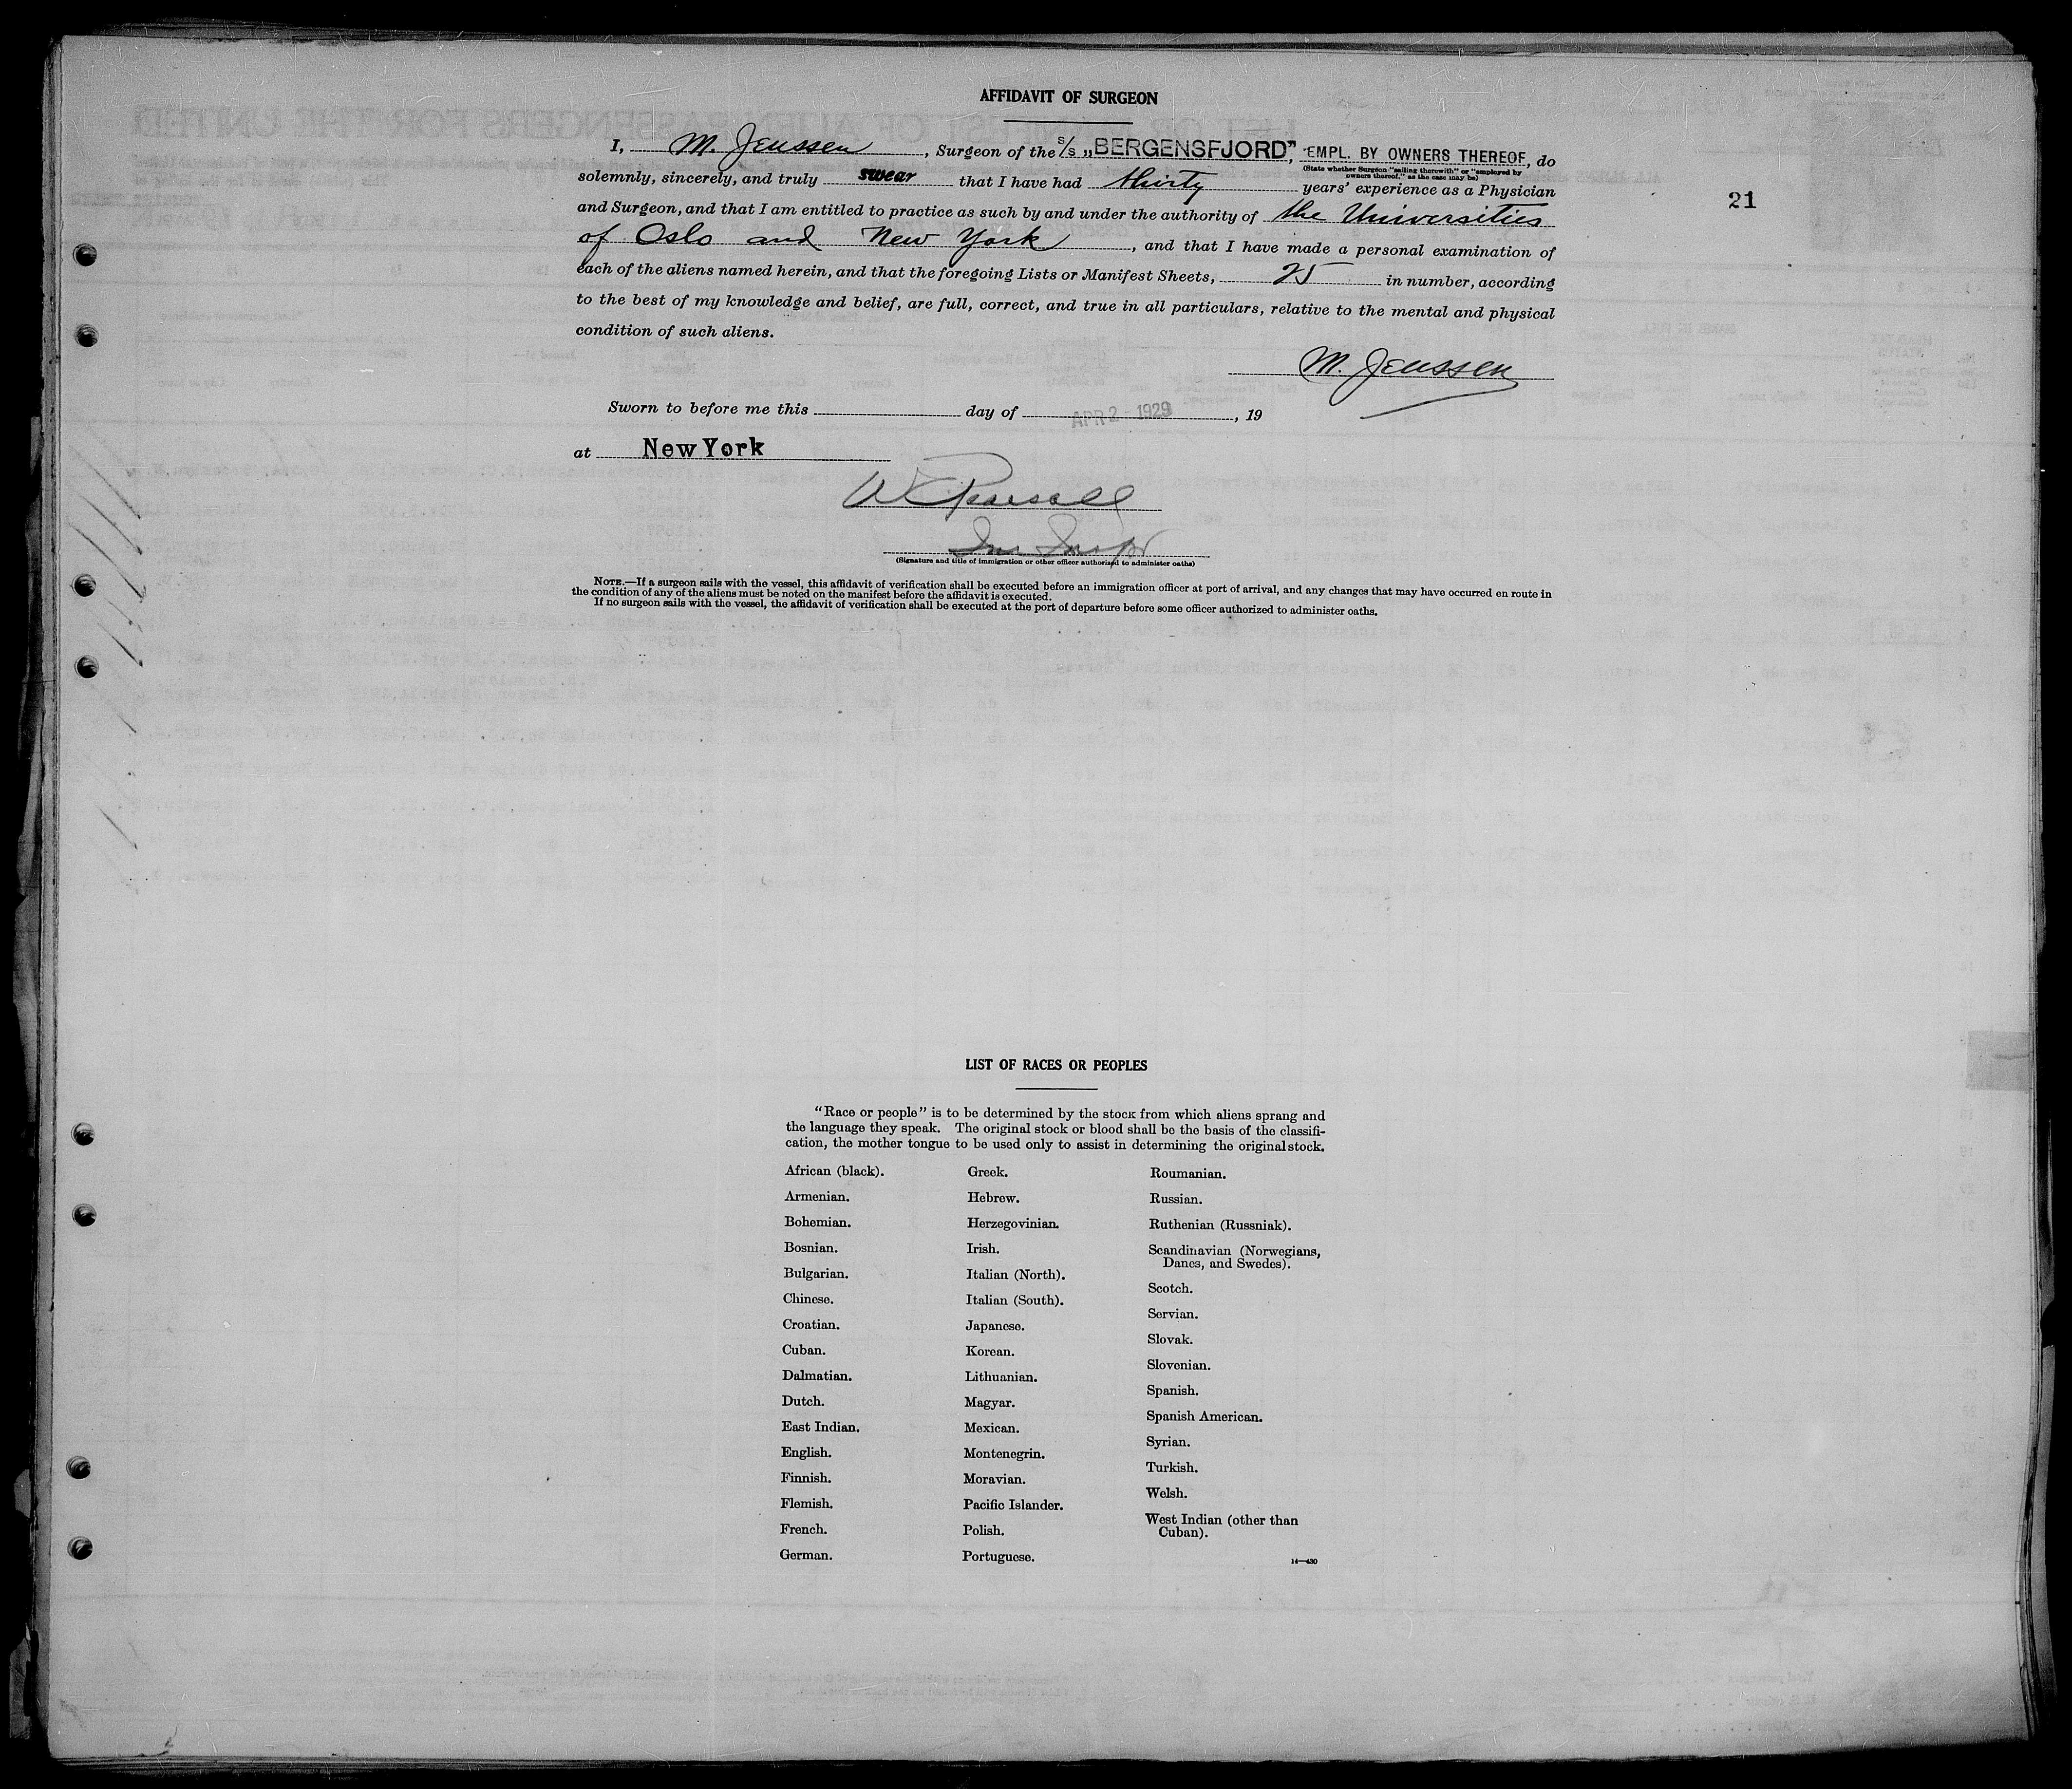 AFFIDAVIT OF SURGEON
I, M. Jenssen, Surgeon of the S/S „BERGENSFJORD”, EMPL. BY OWNERS THEREOF, do
(State whether Surgeon “sailing therewith” or “employed by
owners thereof,” as the case may be)
solemnly, sincerely, and truly swear that I have had thirty years’ experience as a Physician
and Surgeon, and that I am entitled to practice as such by and under the authority of the Universities
of Oslo and New York, and that I have made a personal examination of
each of the aliens named herein, and that the foregoing Lists or Manifest Sheets, 25 in number, according
to the best of my knowledge and belief, are full, correct, and true in all particulars, relative to the mental and physical
condition of such aliens.
21
M. Jenssen
Sworn to before me this day of APR 2 - 1929, 19
at New York
(Signature and title of immigration or other officer authorized to administer oaths)
NOTE.—If a surgeon sails with the vessel, this affidavit of verification shall be executed before an immigration officer at port of arrival, and any changes that may have occurred en route in
the condition of any of the aliens must be noted on the manifest before the affidavit is executed.
If no surgeon sails with the vessel, the affidavit of verification shall be executed at the port of departure before some officer authorized to administer oaths.
LIST OF RACES OR PEOPLES
“Race or people” is to be determined by the stock from which aliens sprang and
the language they speak. The original stock or blood shall be the basis of the classifi-
cation, the mother tongue to be used only to assist in determining the original stock.
African (black).
Armenian.
Bohemian.
Bosnian.
Bulgarian.
Chinese.
Croatian.
Cuban.
Dalmatian.
Dutch.
East Indian.
English.
Finnish.
Flemish.
French.
German.
Greek.
Hebrew.
Herzegovinian.
Irish.
Italian (North).
Italian (South).
Japanese.
Korean.
Lithuanian.
Magyar.
Mexican.
Montenegrin.
Moravian.
Pacific Islander.
Polish.
Portuguese.
Roumanian.
Russian.
Ruthenian (Russniak).
Scandinavian (Norwegians,
Danes, and Swedes).
Scotch.
Servian.
Slovak.
Slovenian.
Spanish.
Spanish American.
Syrian.
Turkish.
Welsh.
West Indian (other than
Cuban).
14—430